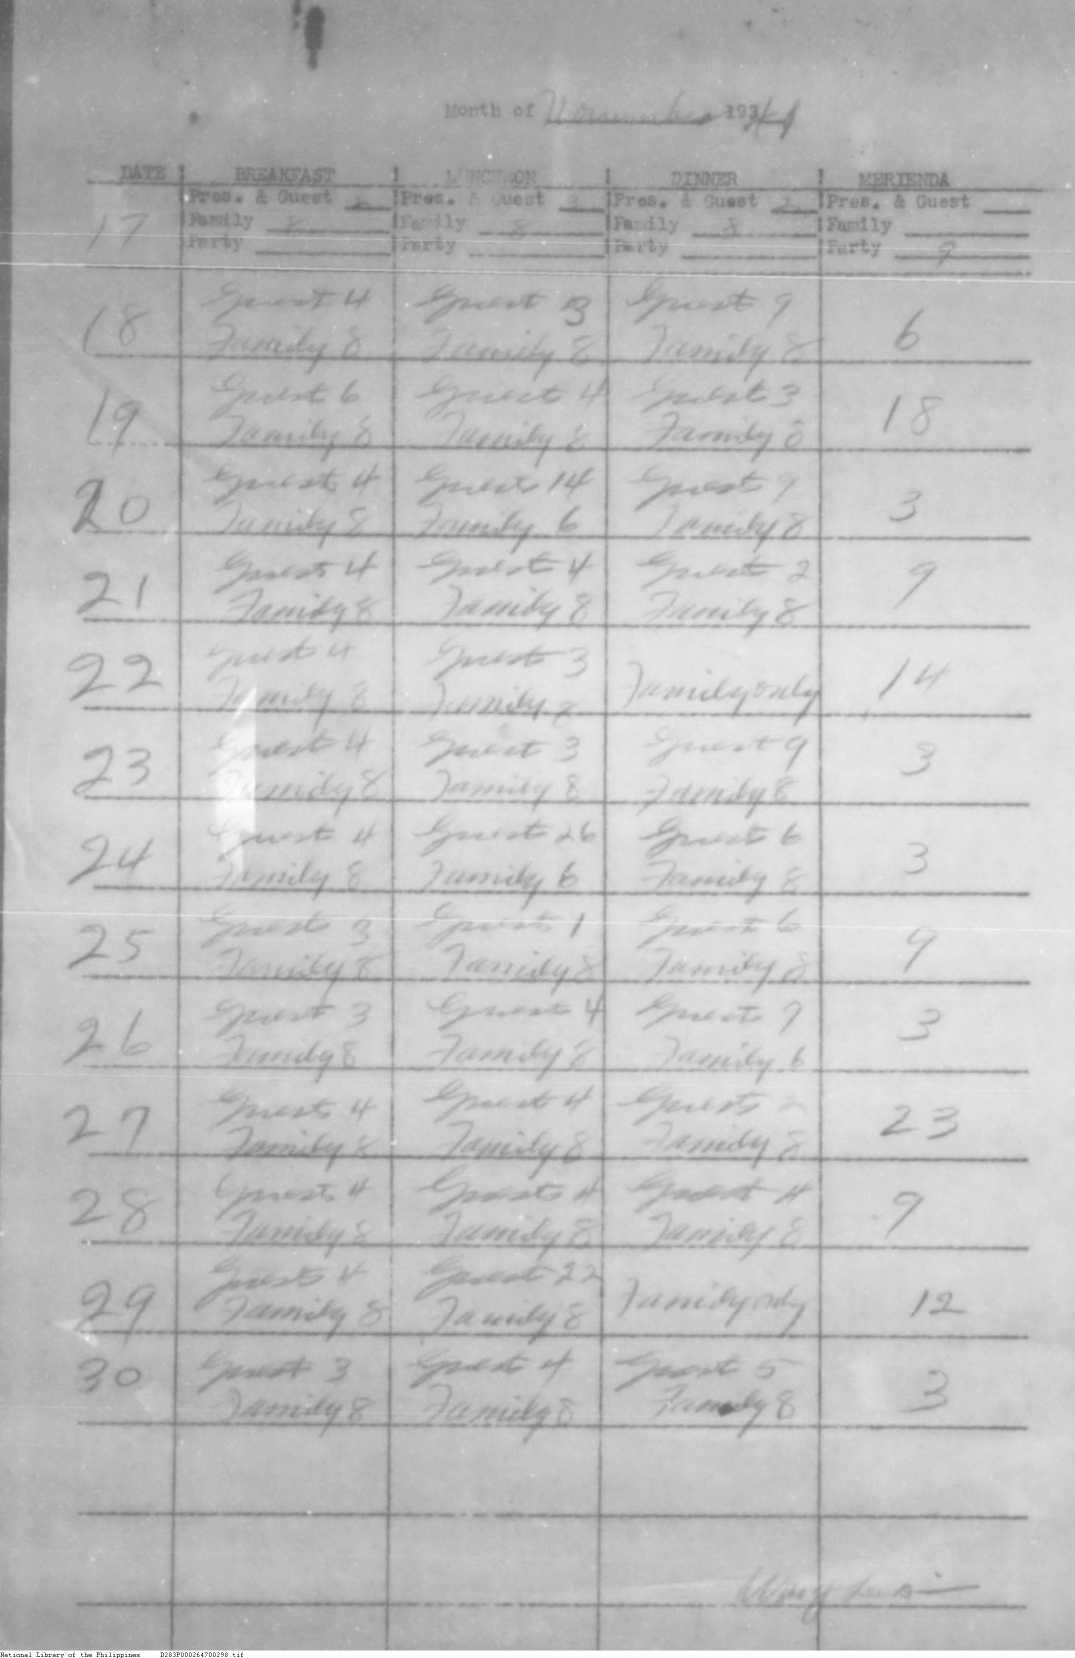 Month of November 1941
DATE ! BREAKFAST ! LUNCHEON ! DINNER ! MERIENDA
17 Pres. & Guest ! Pres. & Guest 3 ! Pres. & Guest 2 ! Pres. & Guest
Family 8 ! Family 8 ! Family 8 ! Family
Party ! Party ! Party ! Party 9
Guest 4 Guest 13 Guest 9
18 Family 8 Family 8 Family 8 6
Guest 6 Guest 4 Guest 3
19 Family 8 Family 8 Family 8 18
Guest 4 Guests 14 Guest 9
20 Family 8 Family 6 Family 8 3
Guest 4 Guest 4 Guest 2
21 Family 8 Family 8 Family 8 9
Guest 4 Guest 3
22 Family 8 Family 8 Family only 14
Guest 4 Guest 3 Guest 9
23 Family 8 Family 8 Family 8 3
Guest 4 Guest 26 Guest 6
24 Family 8 Family 6 Family 8 3
Guest 3 Guest 1 Guest 6
25 Family 8 Family 8 Family 8 9
Guest 3 Guest 4 Guest 7
26 Family 8 Family 8 Family 6 3
Guest 4 Guest 4 Guests
27 Family 8 Family 8 Family 8 23
Guest 4 Guests 4 Guest 4
28 Family 8 Family 8 Family 8 9
Guest 4 Guest 22
29 Family 8 Family 8 Family only 12
Guest 3 Guest 4 Guest 5
30 Family 8 Family 8 Family 8 3
National Library of the Philippines D283P000264700298.tif